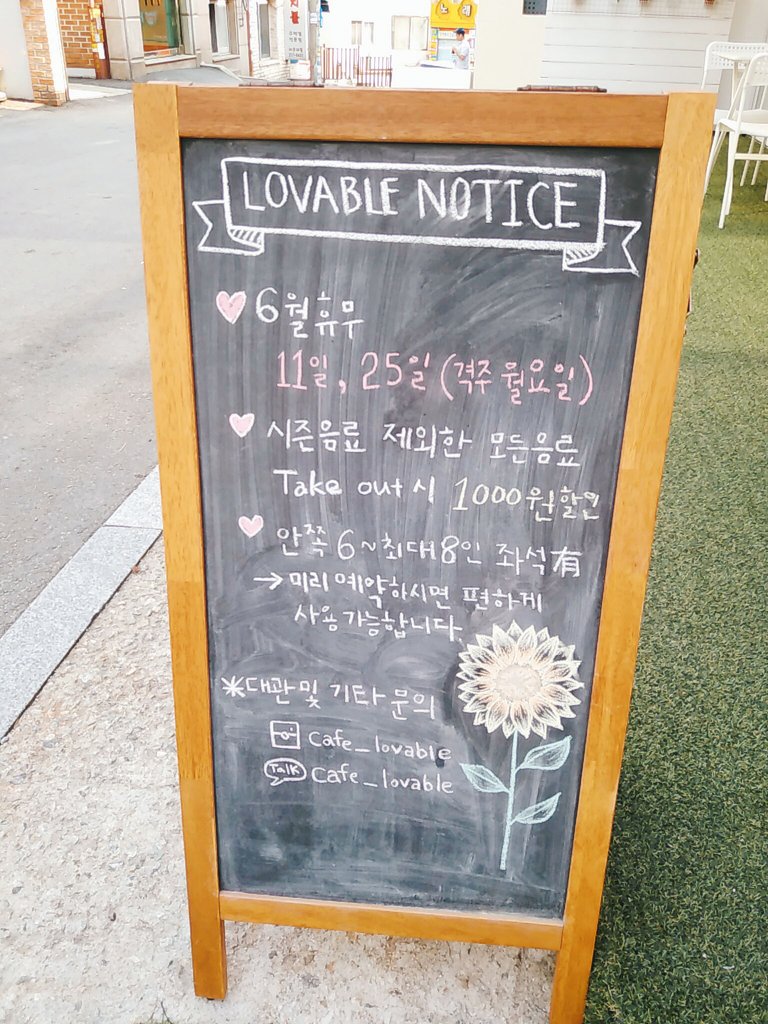 LOVABLE NOTICE
6월휴무
11일, 25일 (격주 월요일)
시즌음료 제외한 모든음료
Take out 시 1000원할인
안쪽 6~최대8인 좌석有
→ 미리 예약하시면 편하게
사용가능합니다.
※대관 및 기타 문의
cafe_lovable
Talk cafe_lovable